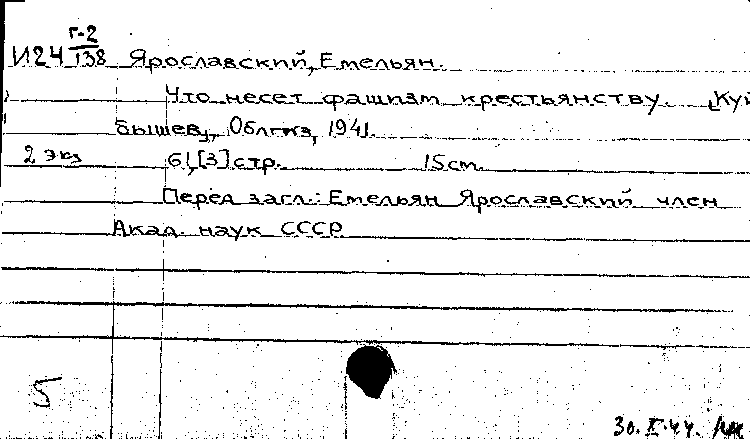 Г-2
И24 138 Ярославский, Емельян.
Что несет фашизм крестьянству. [Куй
бышев], Облгиз, 1941.
2 экз 61,[3] стр. 15cm.
Перед загл.: Емельян Ярославский член
Акад. наук СССР
5
30.X.44.